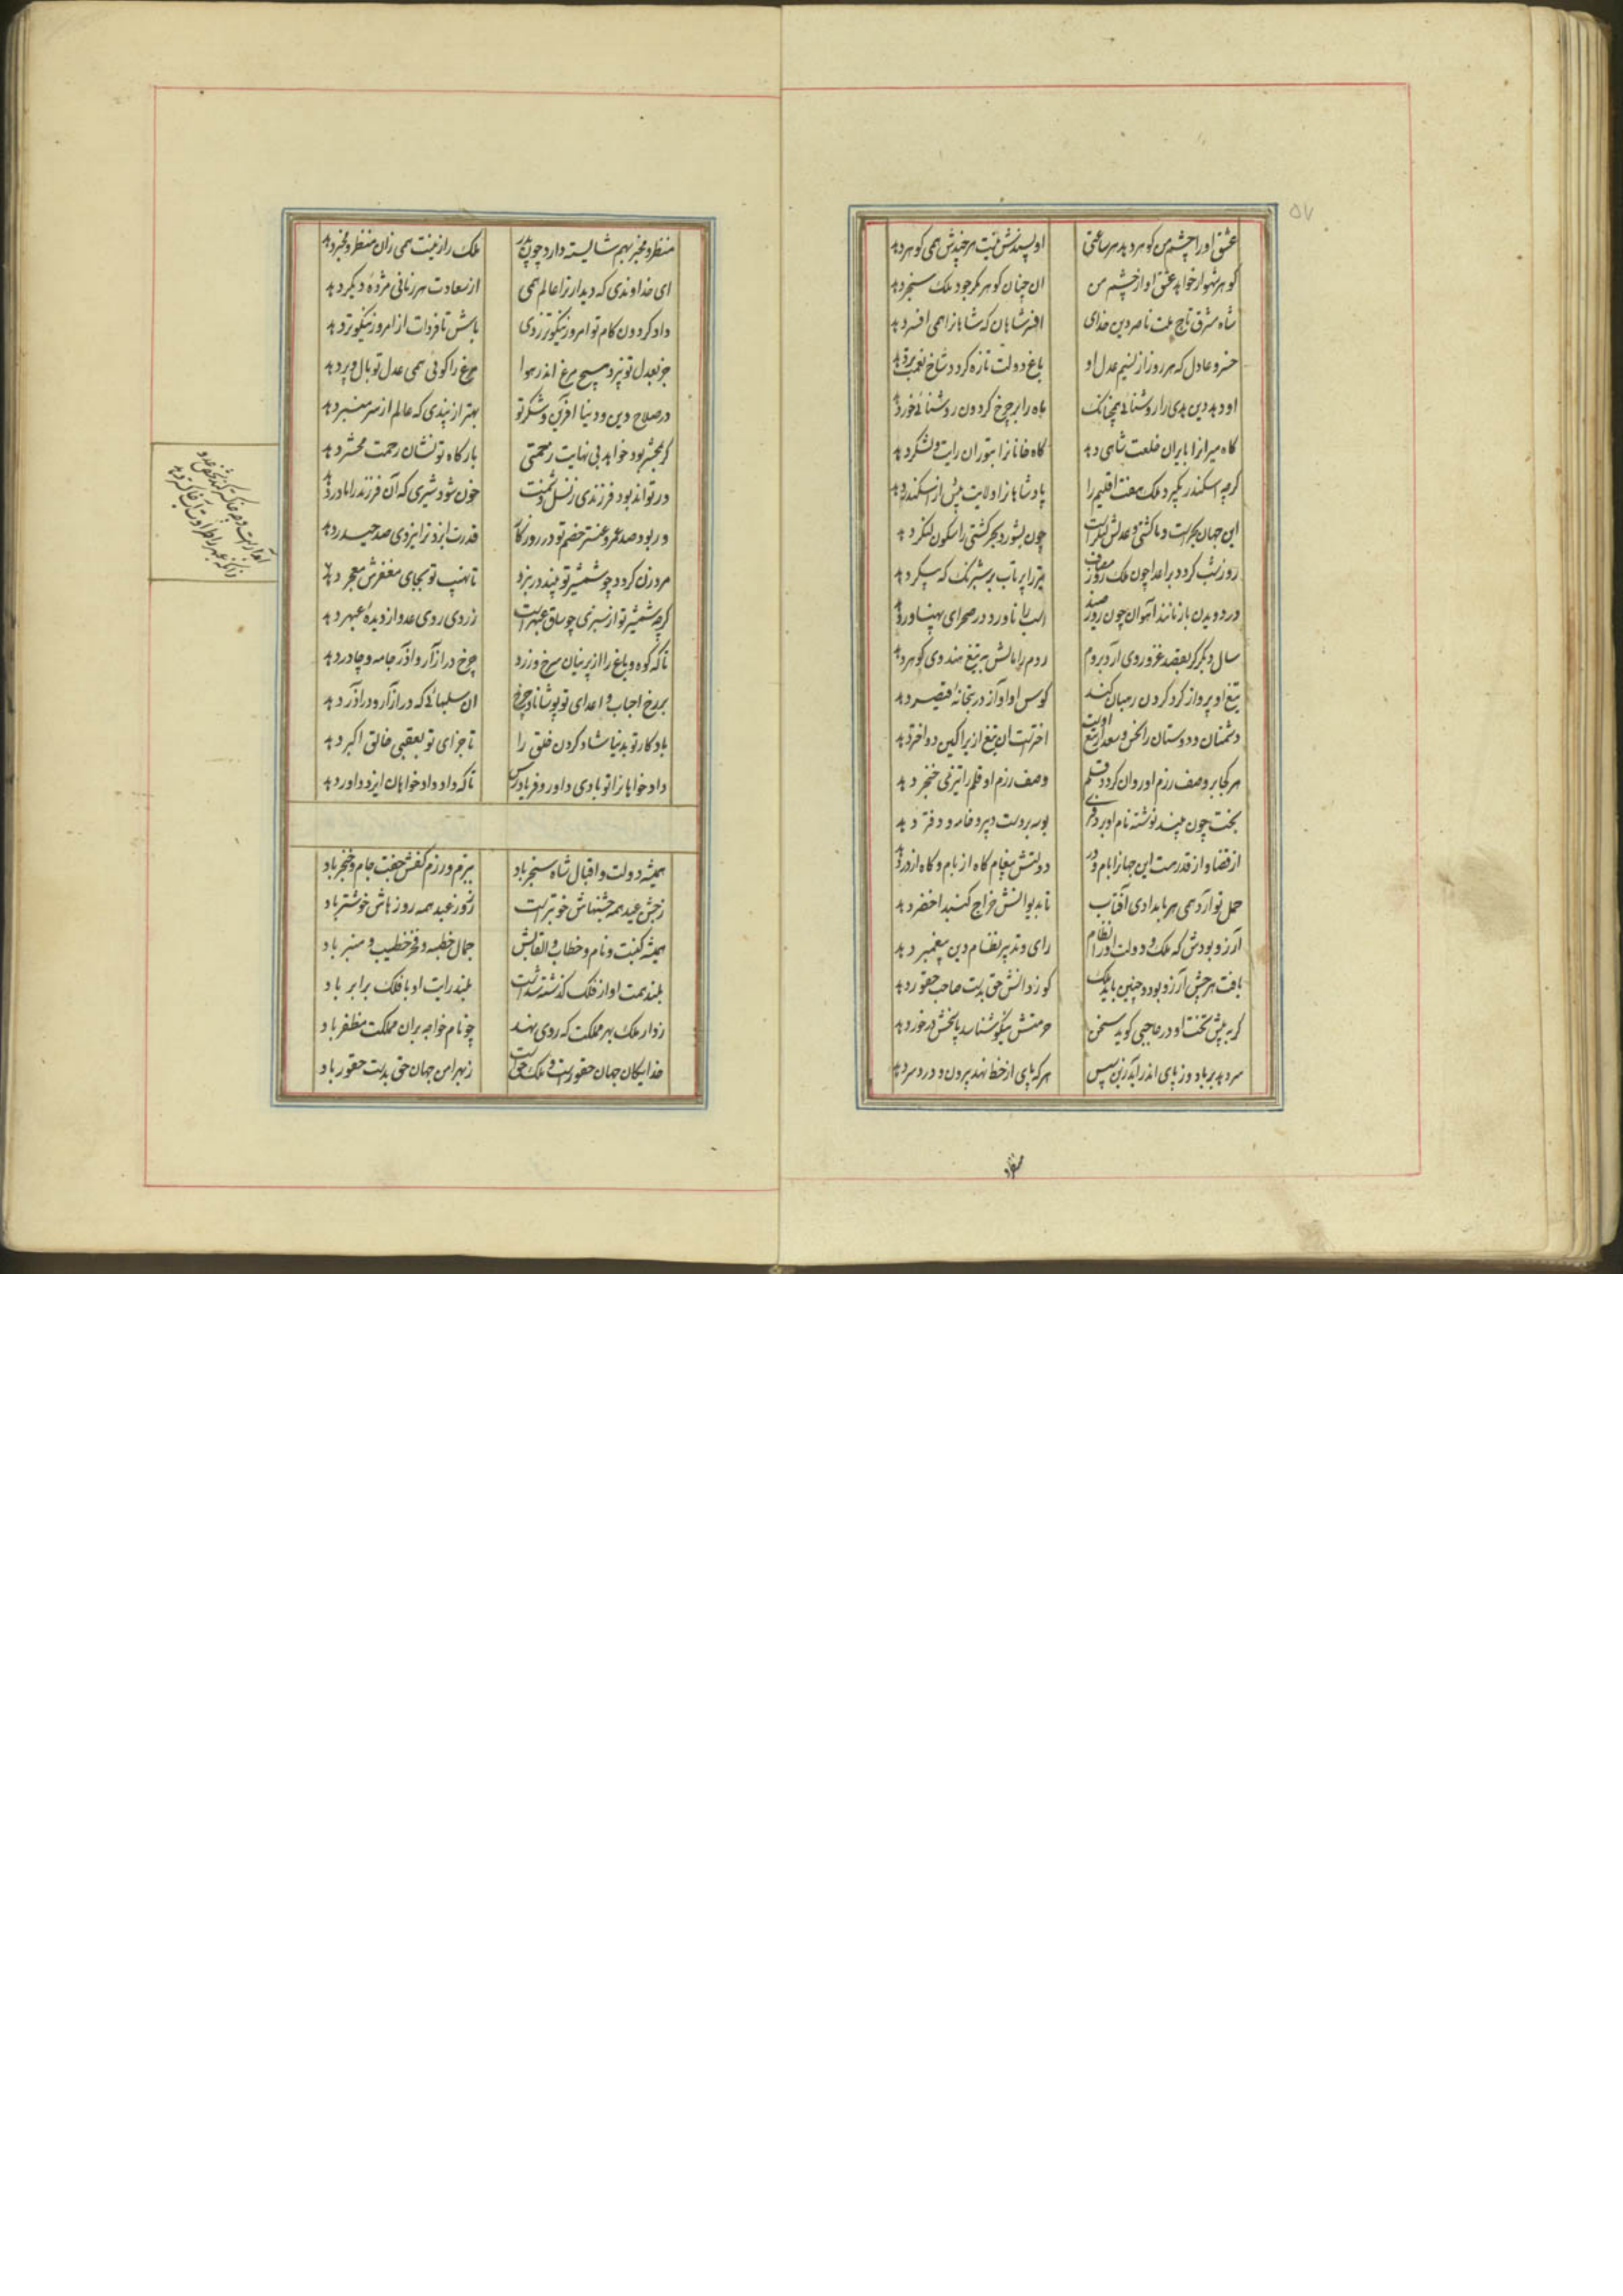 ۵۷
عشق او را چشم من کوهر دهد هر ساعتی    او پسندش نیست هر چندش همی کوهر دهد
کوهر شهوار خواهد عشق او از چشم من    ان چنان کوهر مکر جود ملک سنجر دهد
شاه مشرق تاج ملت ناصر دین خدای    افسر شاهان که شاهانرا همی افسر دهد
خسرو عادل که هر روز از نسیم عدل او    باغ دولت تازه کردد شاخ نعمت بر دهد
او دهد دین هدی را روشنائی همچنانک    ماه را بر چرخ کردون روشنائی خور دهد
کاه میرانرا بایران خلعت شاهی دهد    کاه خانانرا بتوران رایت و لشکر دهد
کرچه اسکندر بکیرد ملک هفت اقلیم را    پادشاهانرا ولایت بیش از اسکندر دهد
این جهان بحر است و ما کشتی و عدلش لنکر است    چون بشورد بحر کشتی را سکون لنکر دهد
روز شب کردد بر اعدا چون ملک روز مصاف    تیر را پرتاب بر شبرنک که پیکر دهد
در دویدن باز مانند آهوان چون روز صید    اسب را ناورد در صحرای پهناور دهد
سال دیکر کر بقصد غزو روی آرد بروم    روم را مالش به تیغ هندوی کوهر دهد
تیغ او پرواز کرد کردن رهبان کند    کوس او آواز در بتخانهٔ قیصر دهد
دشمنان و دوستان را نحس و سعد از تیغ اوست    اخترست ان تیغ ازیرا کین دو اختر دهد
هر کجا بر وصف رزم او روان کردد قلم    وصف رزم او قلم را تیزی خنجر دهد
بخت چون بیند نوشته نام او بر دفتری    بوسه بر دست دبیر و خامه و دفتر دهد
از قضا و از قدر هست این جهانرا بام و در    دولتش پیغام کاه از بام و کاه از در دهد
حمل نو آرد همی هر بامدادی آفتاب    تا بدیوانش خراج کنبد اخضر دهد
آرزو بودش که ملک و دولت او را نظام    رای و تدبیر نظام دین پیغمبر دهد
یافت هر چش آرزو بود و چنین باید ملک    کو ز دانش حق بدست صاحب حقور دهد
کر به پیش تخت او در حاجبی کوید سخن    حرمتش نیکو شناسد پاسخش در خور دهد
سر دهد بر باد و ز پای اندر آید زین سپس    هر که پای از خط نهد بیرون و درد سر دهد
منظر
منظر و مخبر بهم شایسته دارد چون پدر    ملک را زینت همی زان منظر و مخبر دهد
ای خداوندی که دیدار ترا عالم همی    از سعادت هر زمانی مژدهٔ دیکر دهد
داد کردون کام تو امروز نیکوتر ز دی    باش تا فردات از امروز نیکوتر دهد
جز بعدل تو نپرد هیچ مرغ اندر هوا    مرغ را کوئی همی عدل تو بال و پر دهد
در صلاح دین و دنیا آفرین و شکر تو    بهتر از پندی که عالم از سر منبر دهد
کر بمحشر بود خواهد بی نهایت رحمتی    بارکاه تو نشان رحمت محشر دهد
در تواند بود فرزندی ز نسل دشمنت    خون شود شیری که آن فرزند را مادر دهد
ور بود صد عمرو عنتر خصم تو در روز کار    قدرت ایزد ترا نیروی صد حیدر دهد
مرد زن کردد چو شمشیر تو بیند در نبرد    تا نهیب تو بجای مغفرش معجر دهد
کرچه شمشیر تو از سبزی چو ساق عبهر است    زردی روی عدو از دیدهٔ عبهر دهد
تا که کوه و باغ را از پرنیان سرخ و زرد    چرخ در آزار و آذر جامه و چادر دهد
بر رخ احباب و اعدای تو پوشاناد چرخ    ان سلبهائی که در آزار و در آذر دهد
باد کار تو بدنیا شاد کردن خلق را    تا جزای تو بعقبی خالق اکبر دهد
داد خواهانرا تو بادی داور و فریادرس    تا که داد داد خواهان ایزد داور دهد
همیشه دولت و اقبال شاه سنجر باد    ببزم و رزم کفش جفت جام و خنجر باد
ز جشن عید همه جشنهاش خوبتر است    ز روز عید همه روزهاش خوشتر باد
همیشه کنیت و نام و خطاب و القابش    جمال خطبه و فخر خطیب و منبر باد
بلند همت او از فلک کذشته شدست    بلند رایت او با فلک برابر باد
ز دار ملک بهر مملکت که روی نهد    چو نام خواجه بران مملکت مظفر باد
خدایکان جهان حقورست و ملک حق است    ز بهر امن جهان حق بدست حقور باد